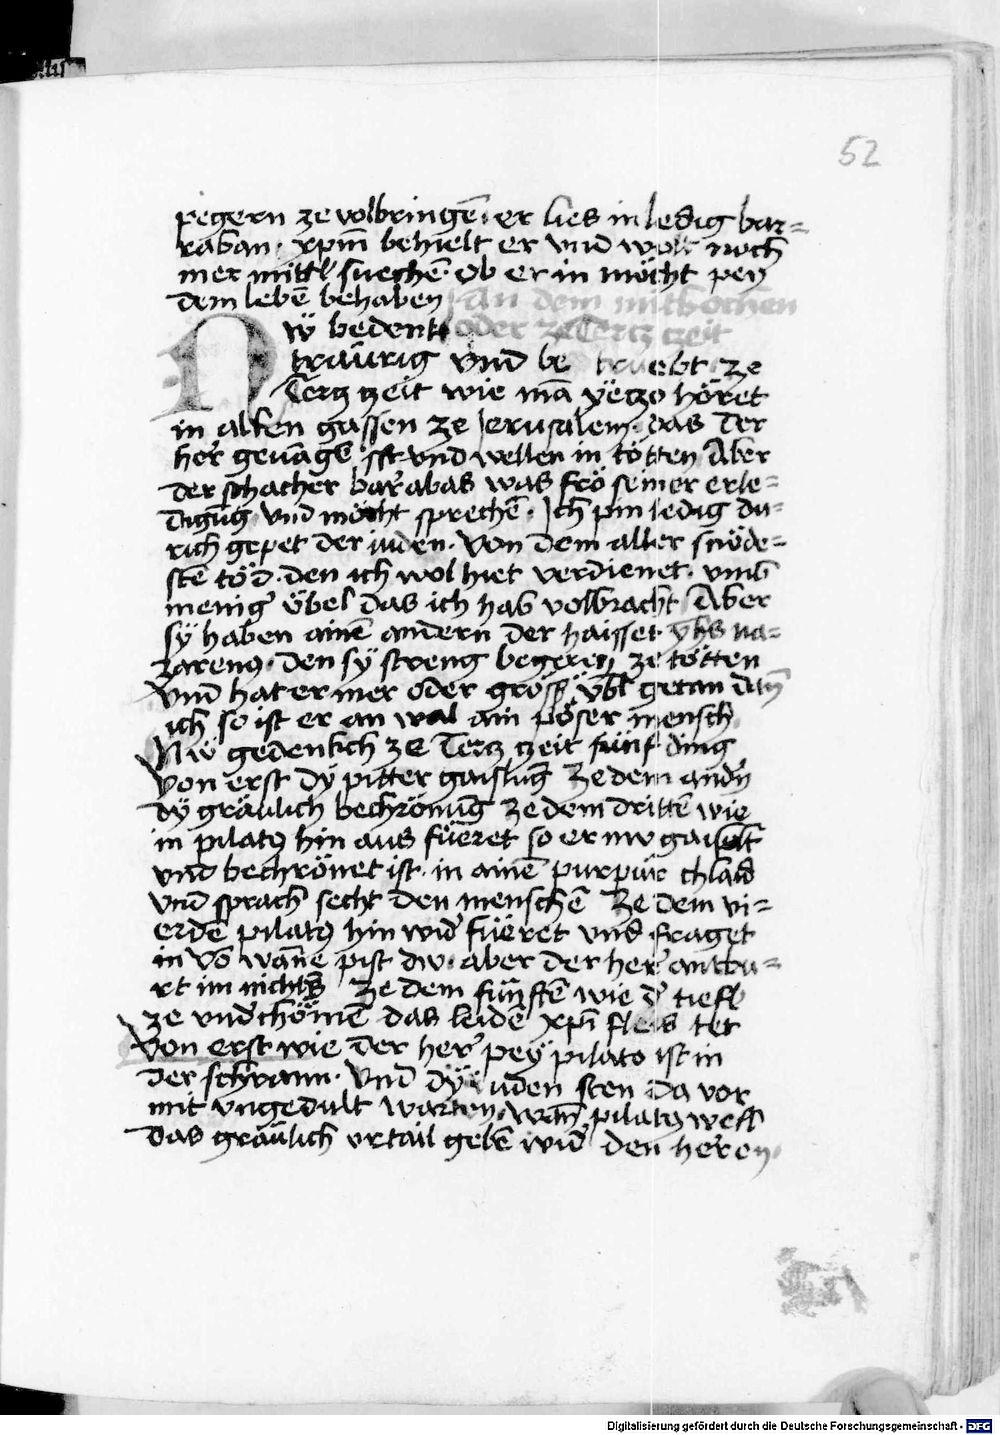 52
pegern ze volbringē· er lies in ledig bar=
raban· xpm̄ behielt er vnd wolt noch
mer mittl suechē· Ob er in möcht pey
dem lebē behaben An dem mitichen
oder ze Tercz zeit
Nw̄ bedenkt
traurig vnd be truebt· ze
Tercz czeit wie mā yeczo höret
in allen gassen ze Jerusalem· das der
her̄ geuāgē ist vnd wellen in tötten Aber
der schacher bar̄abas was frö seiner erle=
digūg· vnd möcht sprechē· Ich pin ledig du=
rich gepet der iuden· von dem aller snöde=
stē töd· den ich wol hiet verdienet· vmb
menig̕ v̈bel das ich hab volbracht Aber
sÿ haben ainē andern der haisset yh̄s na=
zarenꝰ· den sÿ streng begeren ze tötten
vnd hat er mer oder gröss v̈bl getan dan̄
ich so ist er an wal ain pöser mensch
Nw̄ gedenkch ze Tercz czeit fünf ding
von erst dÿ pitter gaislūg Ze dem and̕n
dÿ gräulich bechrönūg Ze dem dritten wie
in pilatꝰ hin aus füeret so er nw gaislt
vnd bechrönet ist· in ainē purpur chlaid
vnd sprach secht den menschē Ze dem vi=
erdē pilatꝰ hin wid̕ füeret vnd fraget
in vō wānne pist dw· aber der her̄ antbu=
rt im nichts Ze dem fünftē wie d̕ tiefl
ze vnd̕chömē das leidē xpī fleis tet
Von erst wie der her̄ pey pilato ist in
der schrann· vnd dÿ iuden sten da vor
mit vngedult warten· wan̄ pilatꝰ well
das gräulich vrtail gebē wid̕ den heren·
Digitalisierung gefördert durch die Deutsche Forschungsgemeinschaft - DFG